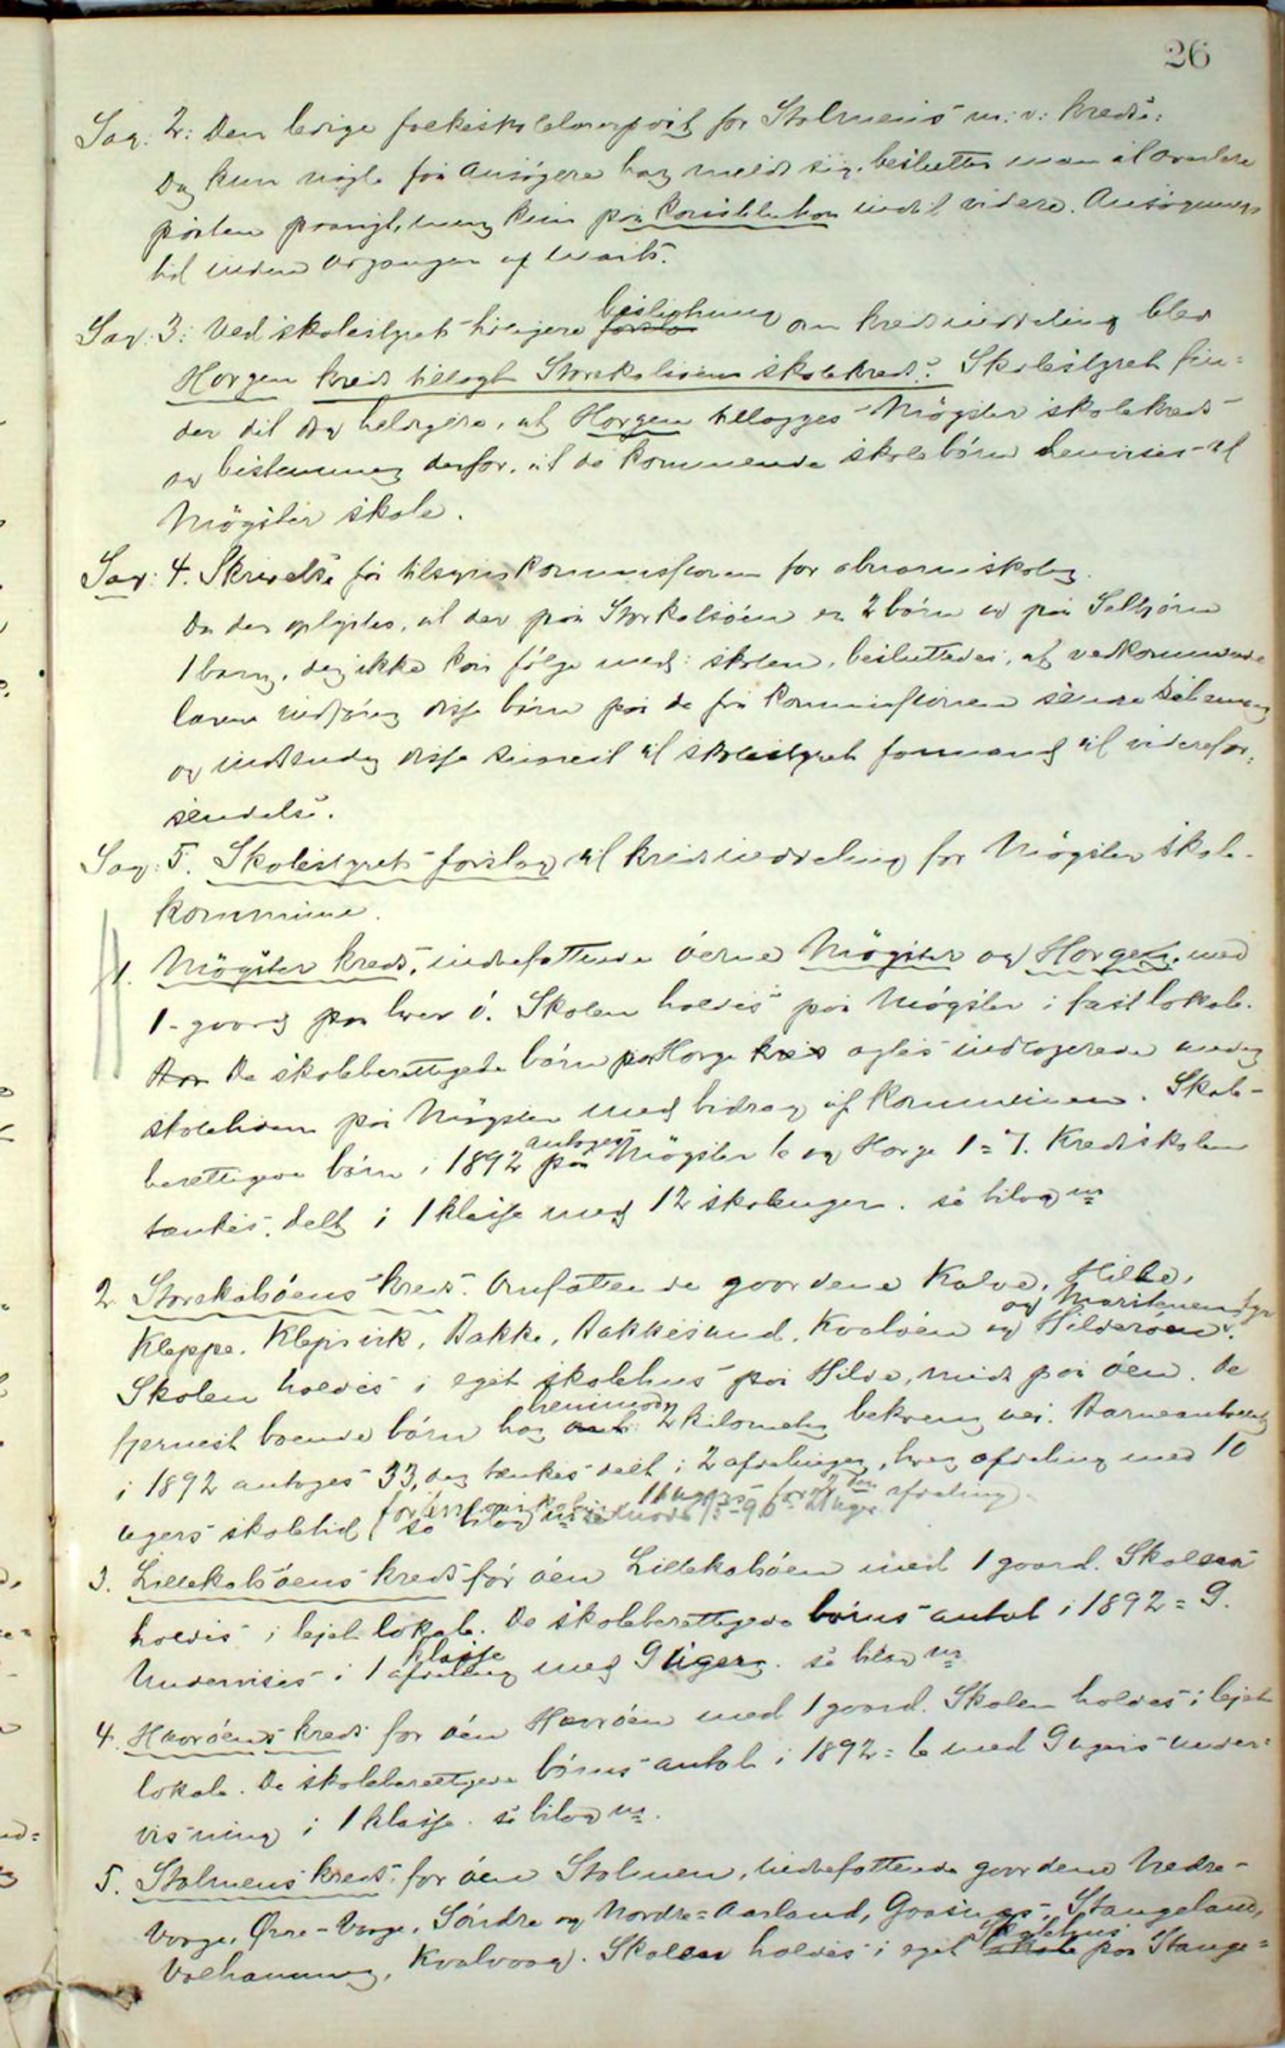 26
Sag: 2: Den ledige folkeskolelærerpost for Stolmens m: v: kreds:
Da kun nogle få ansøgere har meldt sig, besluttes man at overlade
posten, men kun på konstitution indtil videre. Ansøgnings
tid inden udgangen af marts.
Sag: 3: Ved skolestyrets tidligere beslutning om kredsinddeling blev
Horgen kreds tillagt Storekalsøens skolekreds. Skolestyret fin=
der det dog heldigere, at Horgen tillægges Møgster skolekreds
og bestemmer derfor, at de kommende skolebørn henvises til
Møgster skole.
Sag: 4. Skrivelse fra tilsynskommissionen for abnormskolen.
Da der oplystes, at der på Storekalsøen er 2 børn og på Selbjørn
1 barn, der ikke kan følge med i skolen, besluttedes, at vedkommende
lærer indfører disse børn på de fra kommissionen sendte
og indsender disse snarest til skolestyrets formand til viderefor=
sendelse.
Sag: 5. Skolestyrets forslag til kredsinddeling for Møgster skole-
kommune.
1. Møgster kreds, indbefattende øerne Møgster og Horgen, med
1-gaard paa hver ø. Skolen holdes på Møgster i fast lokale.
De skoleberettigede børn på Horge agtes indlogerede under
skoletiden på Møgster med bidrag af kommunen. Skole-
berettigede børn i 1892 antages på Møgster 6 og Horge 1 = 7. Kredsskolen
tænkes delt i 1 klasse med 12 skoleuger. se bilag nr
2. Storekalsøens kreds. Omfattende gaardene Kalve, Hille,
Kleppe, Klepsvik, Bakke, Bakkesund, Kvaløen og Hilderøen. og
Skolen holdes i eget skolehus på Hilde, midt på øen. De
fjernest boende børn har henimod 2 kilometer bekvem vei. Barneantallet
i 1892 antoges 33, der tænkes delt i 2 afdelinger, hver afdeling med 10
ugers skoletid for 2den afdeling
3. Lillekalsøens kreds for øen Lillekalsøen med 1 gaard. Skolen
holdes i lejet lokale. De skoleberettigede børns antal i 1892 = 9.
Undervises i 1 klasse med 9 uger. se bilag nr
4. Havrøens kreds for øen Havrøen med 1 gaard. Skolen holdes i lejet
lokale. De skoleberettigede børns antal i 1892 = 6 med 9 ugers under=
visning i 1 klasse. se bilag nr.
5. Stolmens kreds, for øen Stolmen, indbefattende gaardene Nedre-
Vaage, Øvre-Vaage, Søndre og Nordre=Aarland, Gaasnes, Stangeland,
Valhammer, Kvalvaag. Skolen holdes i eget Skolehus paa Stange=